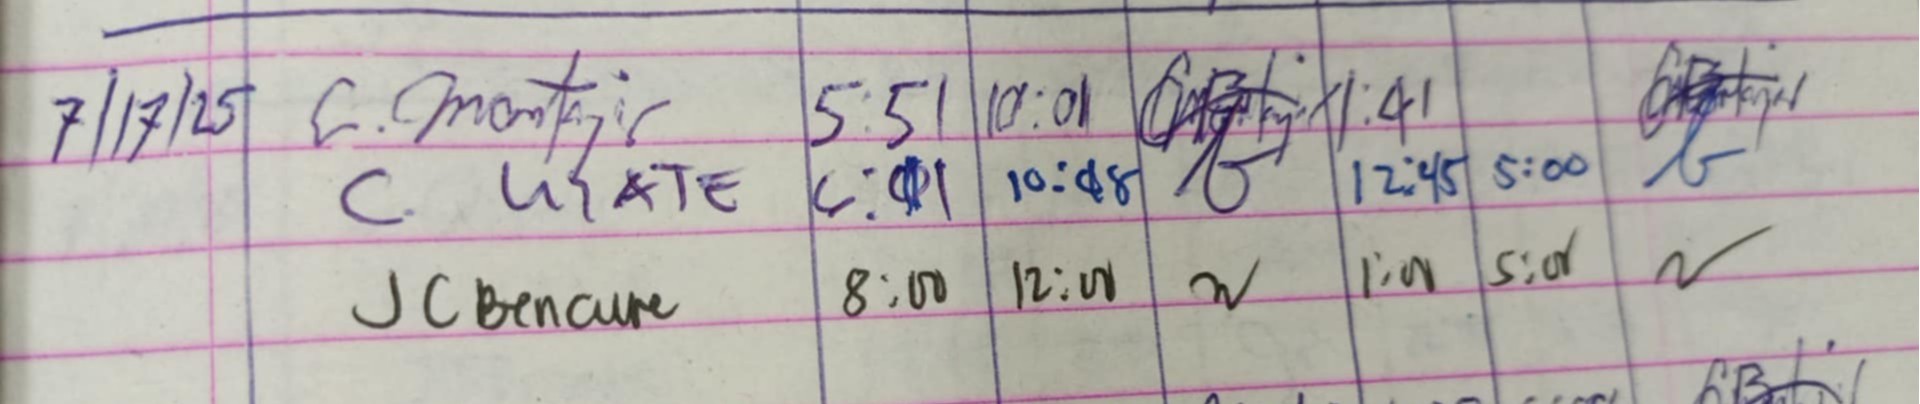 7/17/25 C. Montejir 5:51 10:01 1:41
C. UYATE 6:01 10:08 12:45 5:00
JC Bencure 8:00 12:00 1:00 5:00